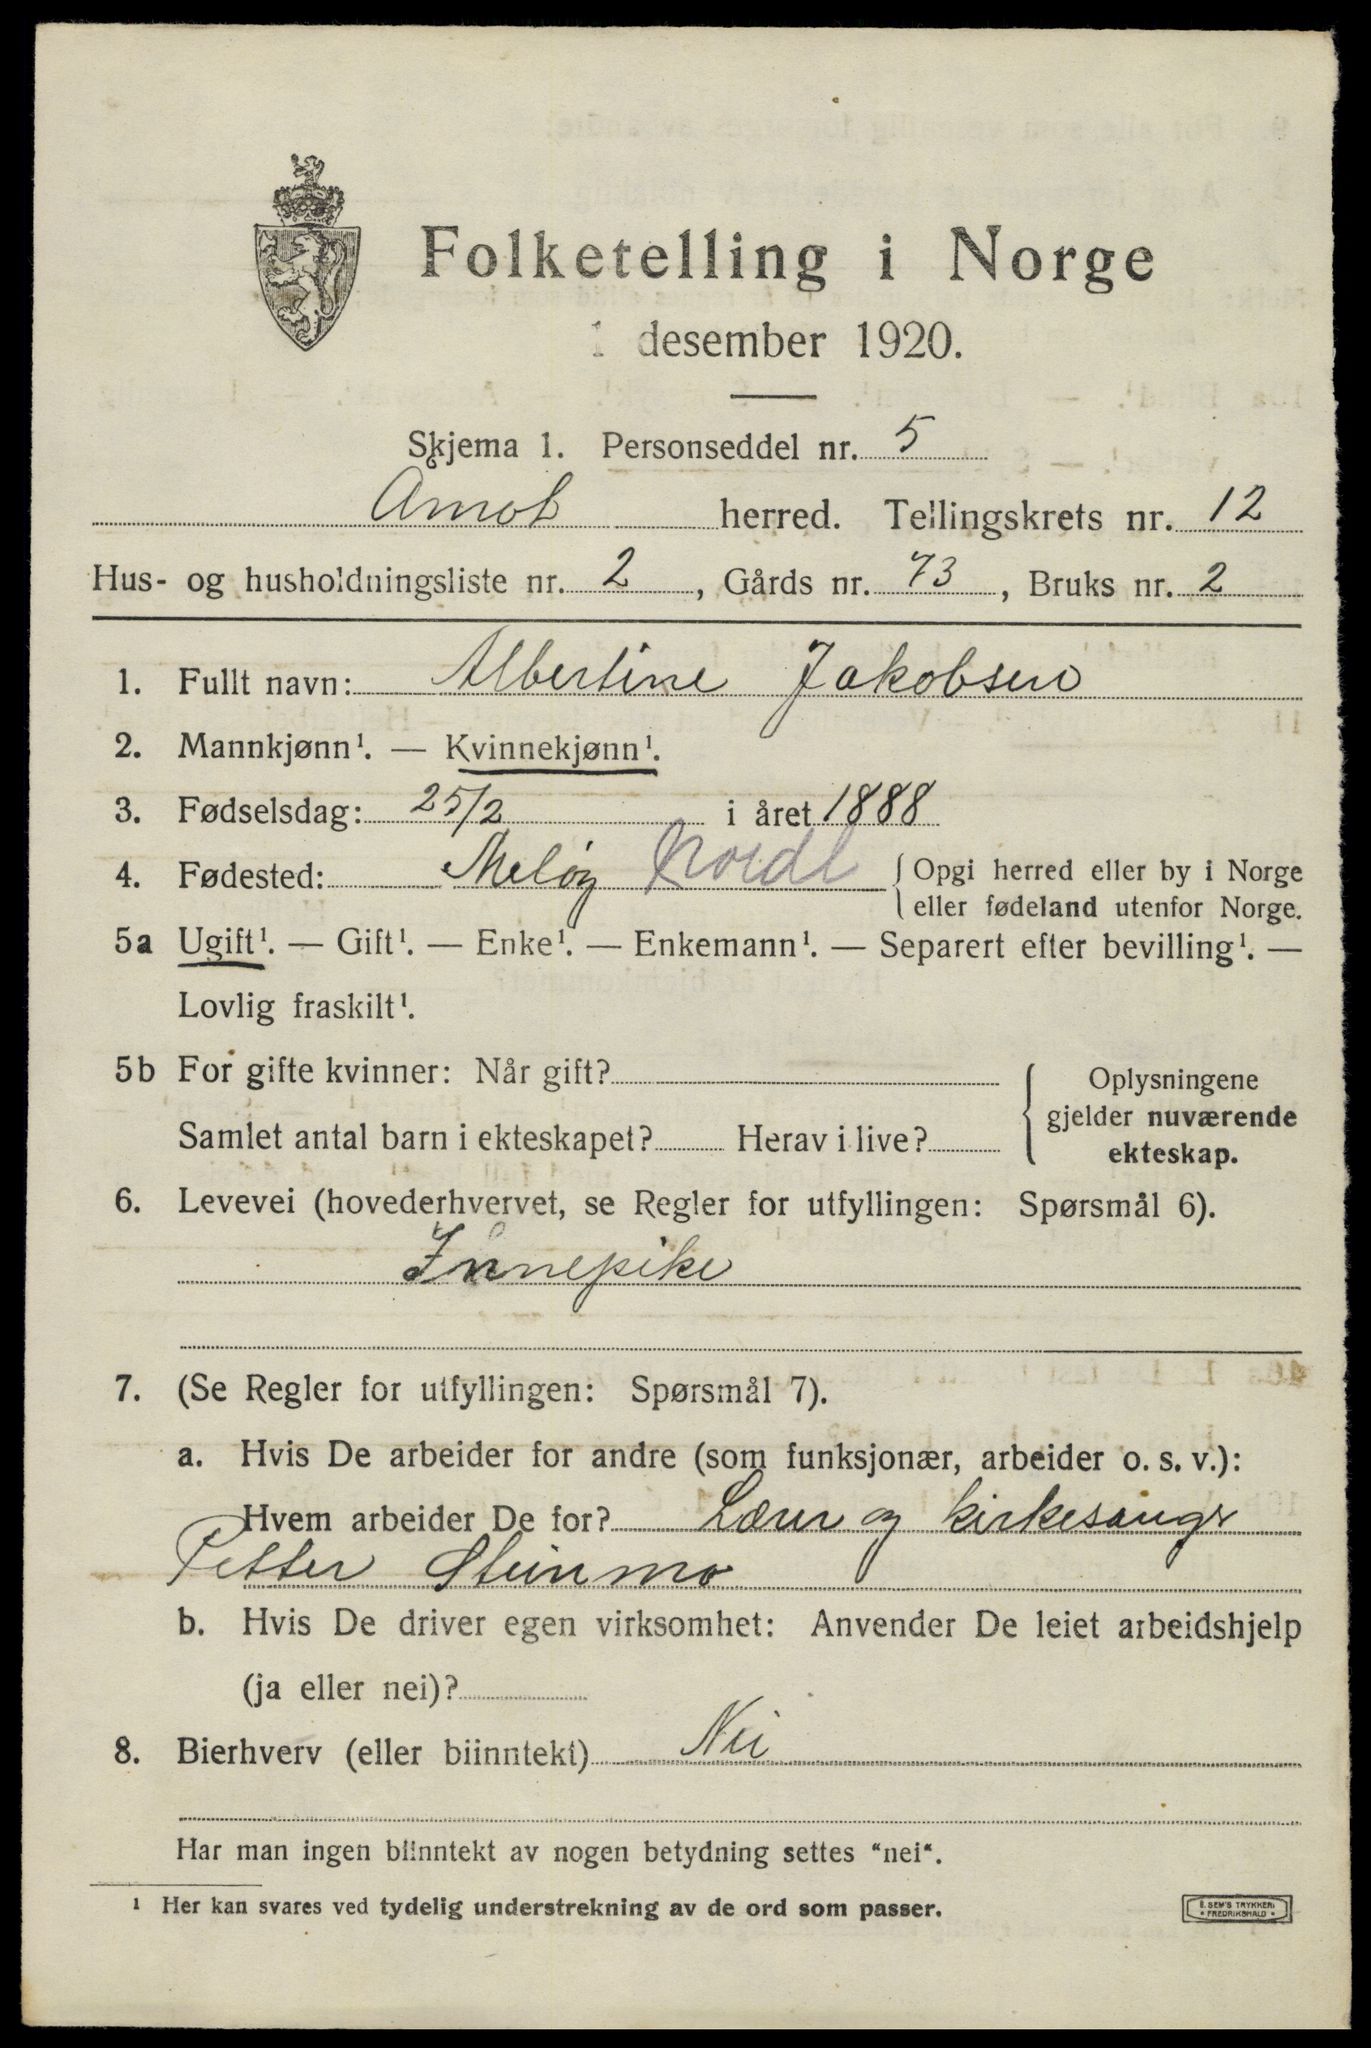 Folketelling i Norge
1 desember 1920.
Skjema 1. Personseddel nr. 5
Åmot herred. Tellingskrets nr. 12
Hus- og husholdningsliste nr. 2, Gårds nr. 73, Bruks nr. 2
1. Fullt navn: Albertine Jakobsen
2. Mannkjønn¹. — Kvinnekjønn¹.
3. Fødselsdag: 25/2 i året 1888
4. Fødested: Meløy Nordl { Opgi herred eller by i Norge
eller fødeland utenfor Norge.
5a Ugift¹. — Gift¹. — Enke¹. — Enkemann¹. — Separert efter bevilling¹. —
Lovlig fraskilt¹.
5b For gifte kvinner: Når gift? { Oplysningene
gjelder nuværende
Samlet antal barn i ekteskapet? Herav i live?
ekteskap.
6. Levevei (hovederhvervet, se Regler for utfyllingen: Spørsmål 6).
Innepike
7. (Se Regler for utfyllingen: Spørsmål 7).
a. Hvis De arbeider for andre (som funksjonær, arbeider o. s. v.):
Hvem arbeider De for? Lærer og kirkesanger
Petter Steinmo
b. Hvis De driver egen virksomhet: Anvender De leiet arbeidshjelp
(ja eller nei)?
8. Bierhverv (eller biinntekt) Nei
Har man ingen biinntekt av nogen betydning settes "nei".
¹ Her kan svares ved tydelig understrekning av de ord som passer.
E. SEM'S TRYKKERI
• FREDRIKSHALD •